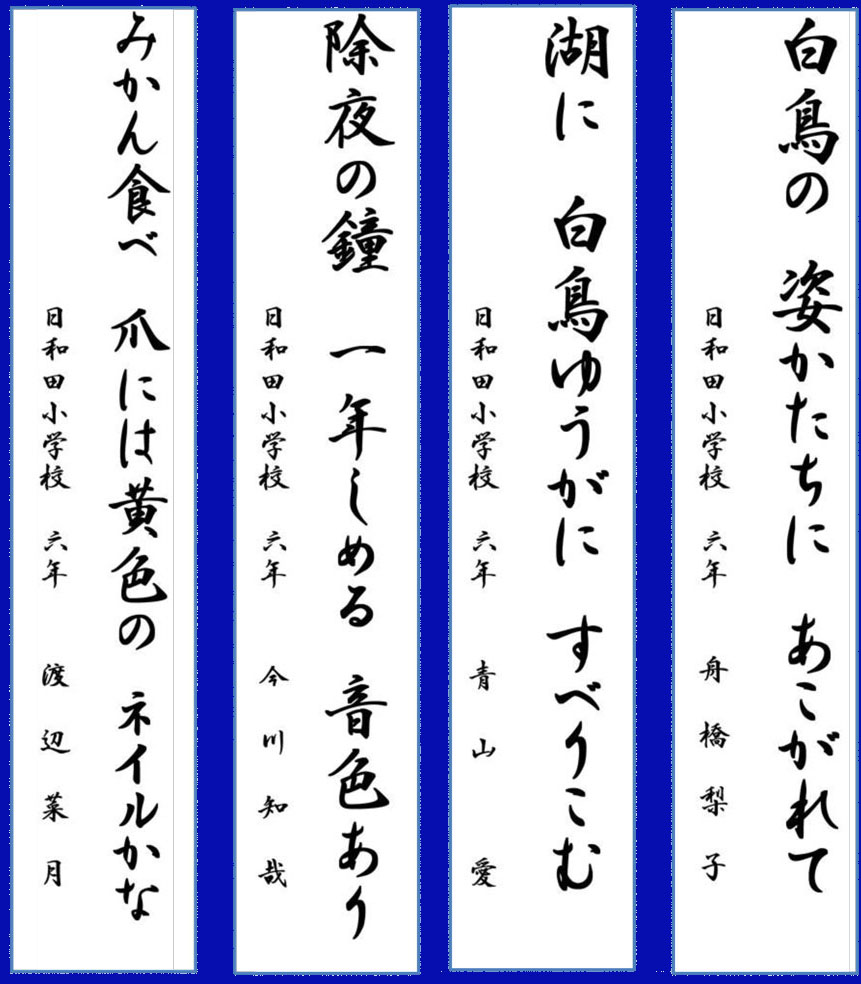 白鳥の　姿かたちに　あこがれて
日和田小学校　六年　舟橋梨子
湖に　白鳥ゆうがに　すべりこむ
日和田小学校　六年　青山　愛
除夜の鐘　一年しめる　音色あり
日和田小学校　六年　今川知哉
みかん食べ　爪には黄色の　ネイルかな
日和田小学校　六年　渡辺菜月